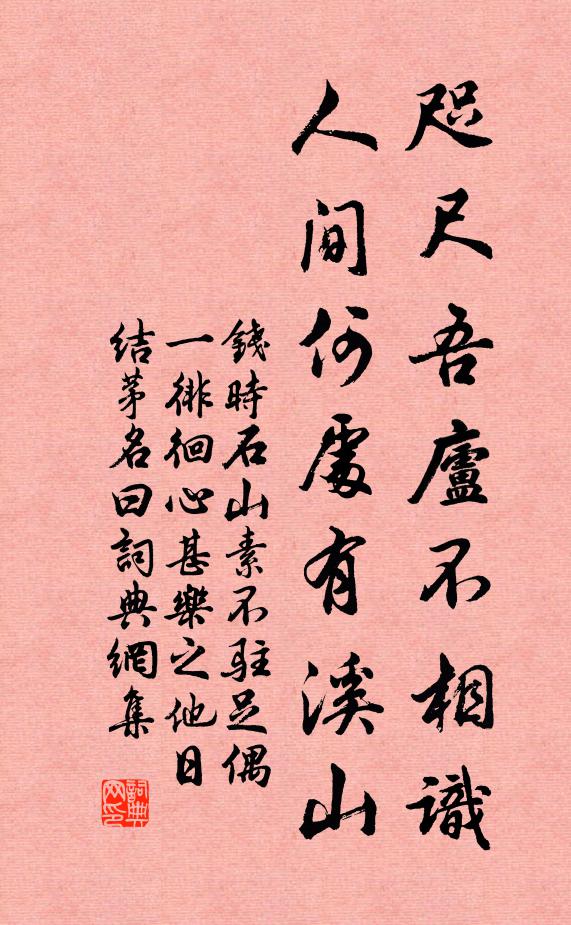 咫尺吾廬不相識
人間何處有溪山
錢時石山素不駐足偶
一徘徊心甚樂之他日
结茅名曰詞典網集
詞典網印